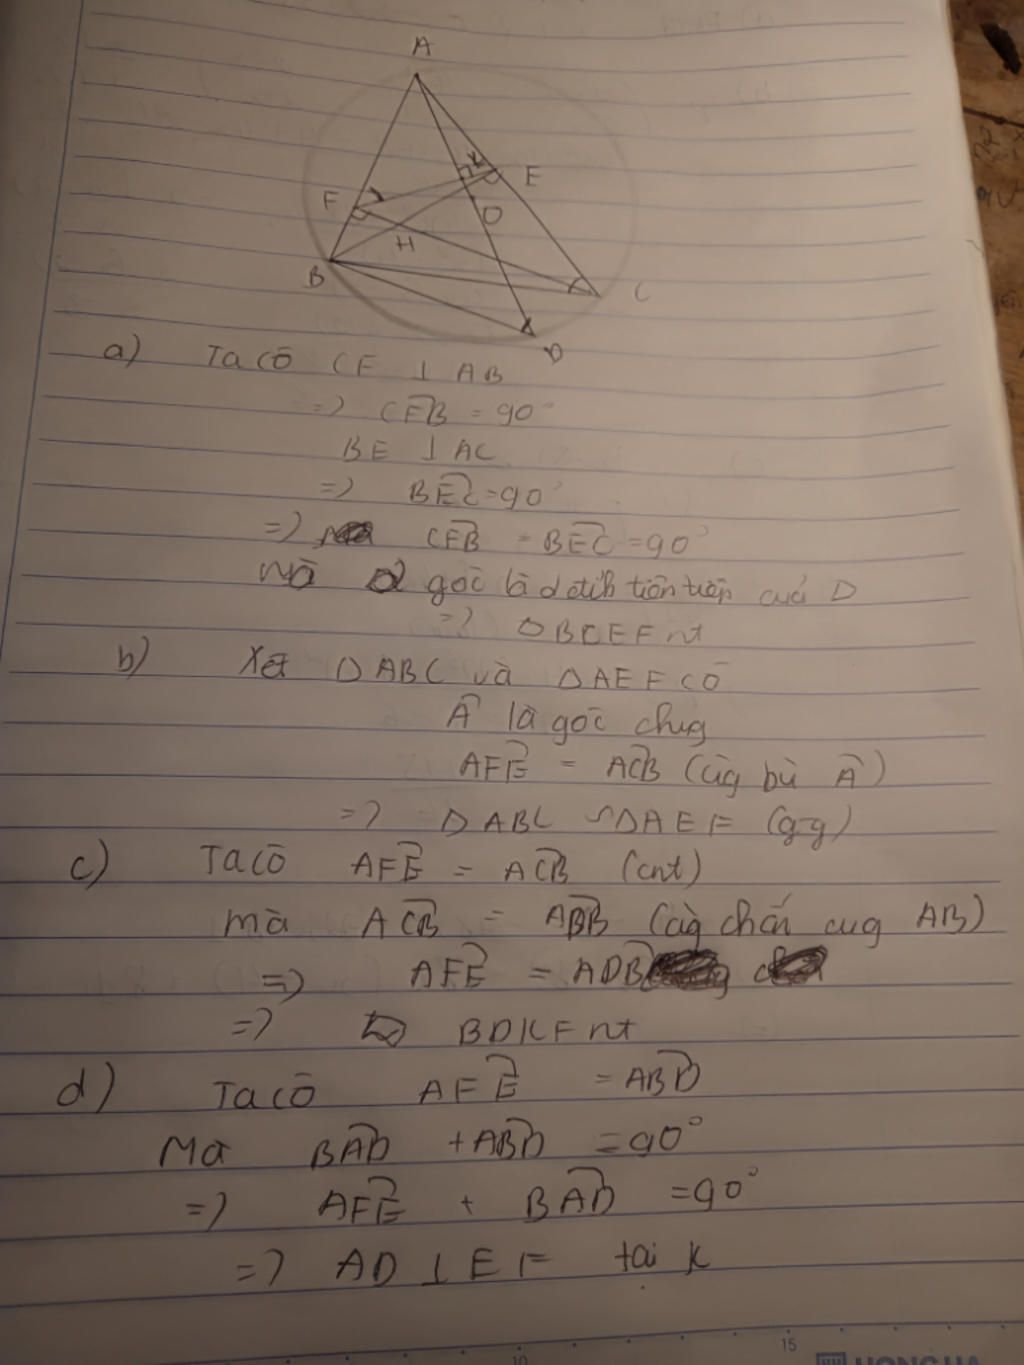 A
K
E
F
O
H
B
C
D
a) Ta có CF ⊥ AB
=> CFB = 90°
BE ⊥ AC
=> BEC = 90°
=> CFB = BEC = 90°
Mà góc là đỉnh của D
=> BCEF nt
b) Xét Δ ABC và Δ AEF CÓ
Â là góc chug
AFE = ACB (cùg bù Â)
=> Δ ABC ∽ Δ AEF (g-g)
c) Ta có AFE = ACB (cnt)
mà ACB = ADB (cùg chắn cug AB)
=> AFE = ADB
=> BDKF nt
d) Ta có AFE = ABD
Mà BAD + ABD = 90°
=> AFE + BAD = 90°
=> AD ⊥ EF tai K
10 15
HONG HA